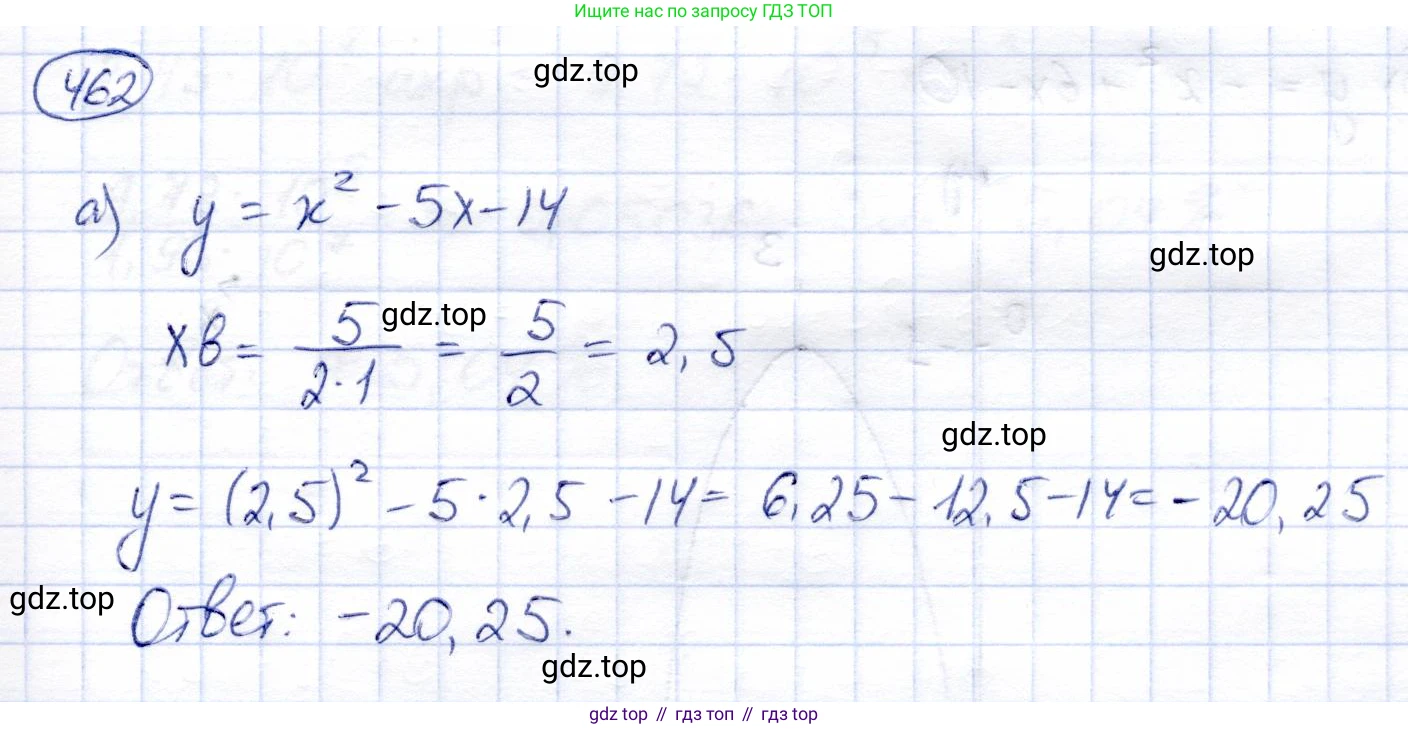 Ищите нас по запросу ГДЗ ТОП
462
gdz.top
а) y = x² - 5x - 14
gdz.top
xв = 5/(2·1) = 5/2 = 2,5
gdz.top
gdz.top
y = (2,5)² - 5·2,5 - 14 = 6,25 - 12,5 - 14 = - 20,25
gdz.top
Ответ: -20,25.
gdz.top
gdz top // гдз топ // гдз top